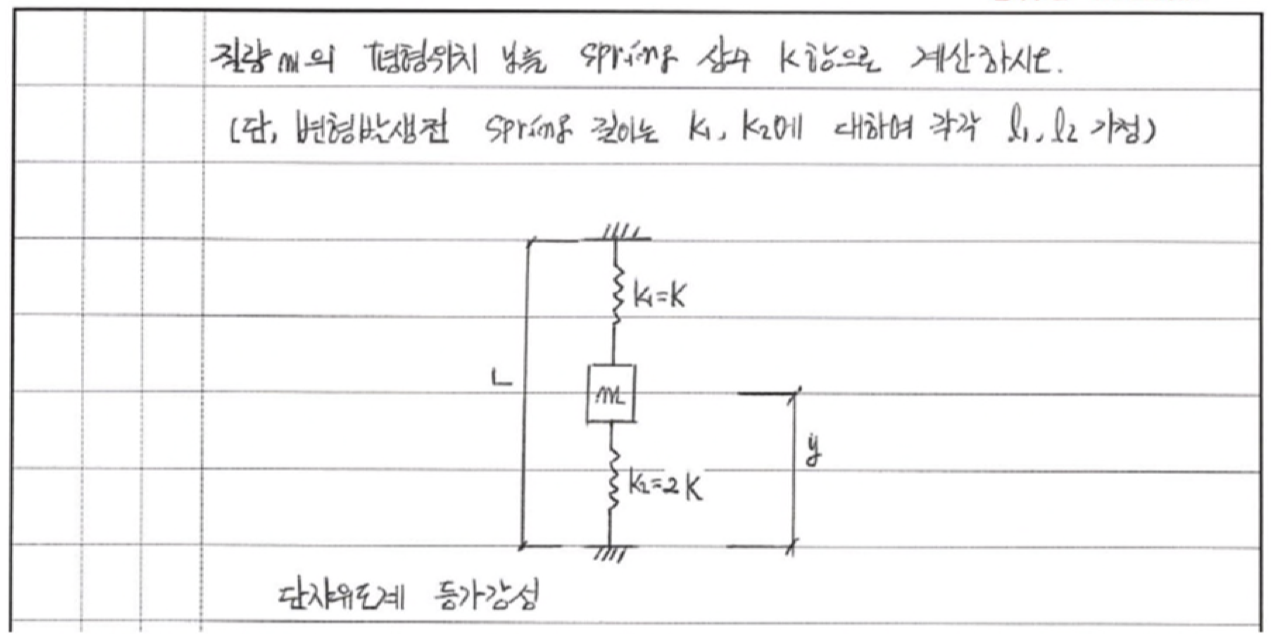 질량 m의 평형위치 y를 spring 상수 K항으로 계산하시오.
(단, 변형발생전 spring 길이는 K₁, K₂에 대하여 각각 l₁, l₂ 가정)
K₁=K
L
m
y
K₂=2K
단자유도계 등가강성